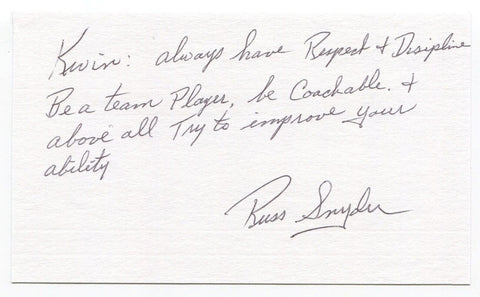 Kevin: always have Respect & Disipline
Be a team Player, be Coachable. &
above all Try to improve your
ability
Russ Snyder